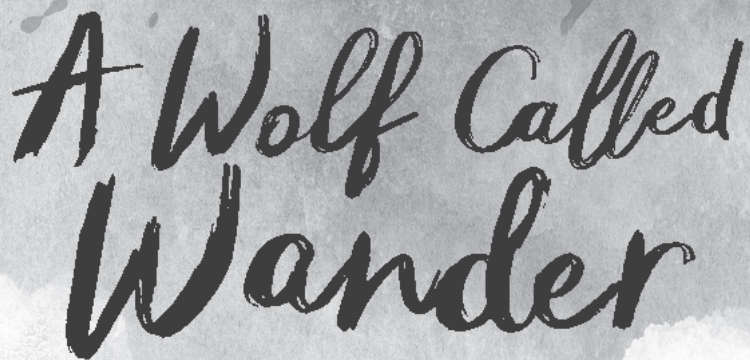 A Wolf Called
Wander